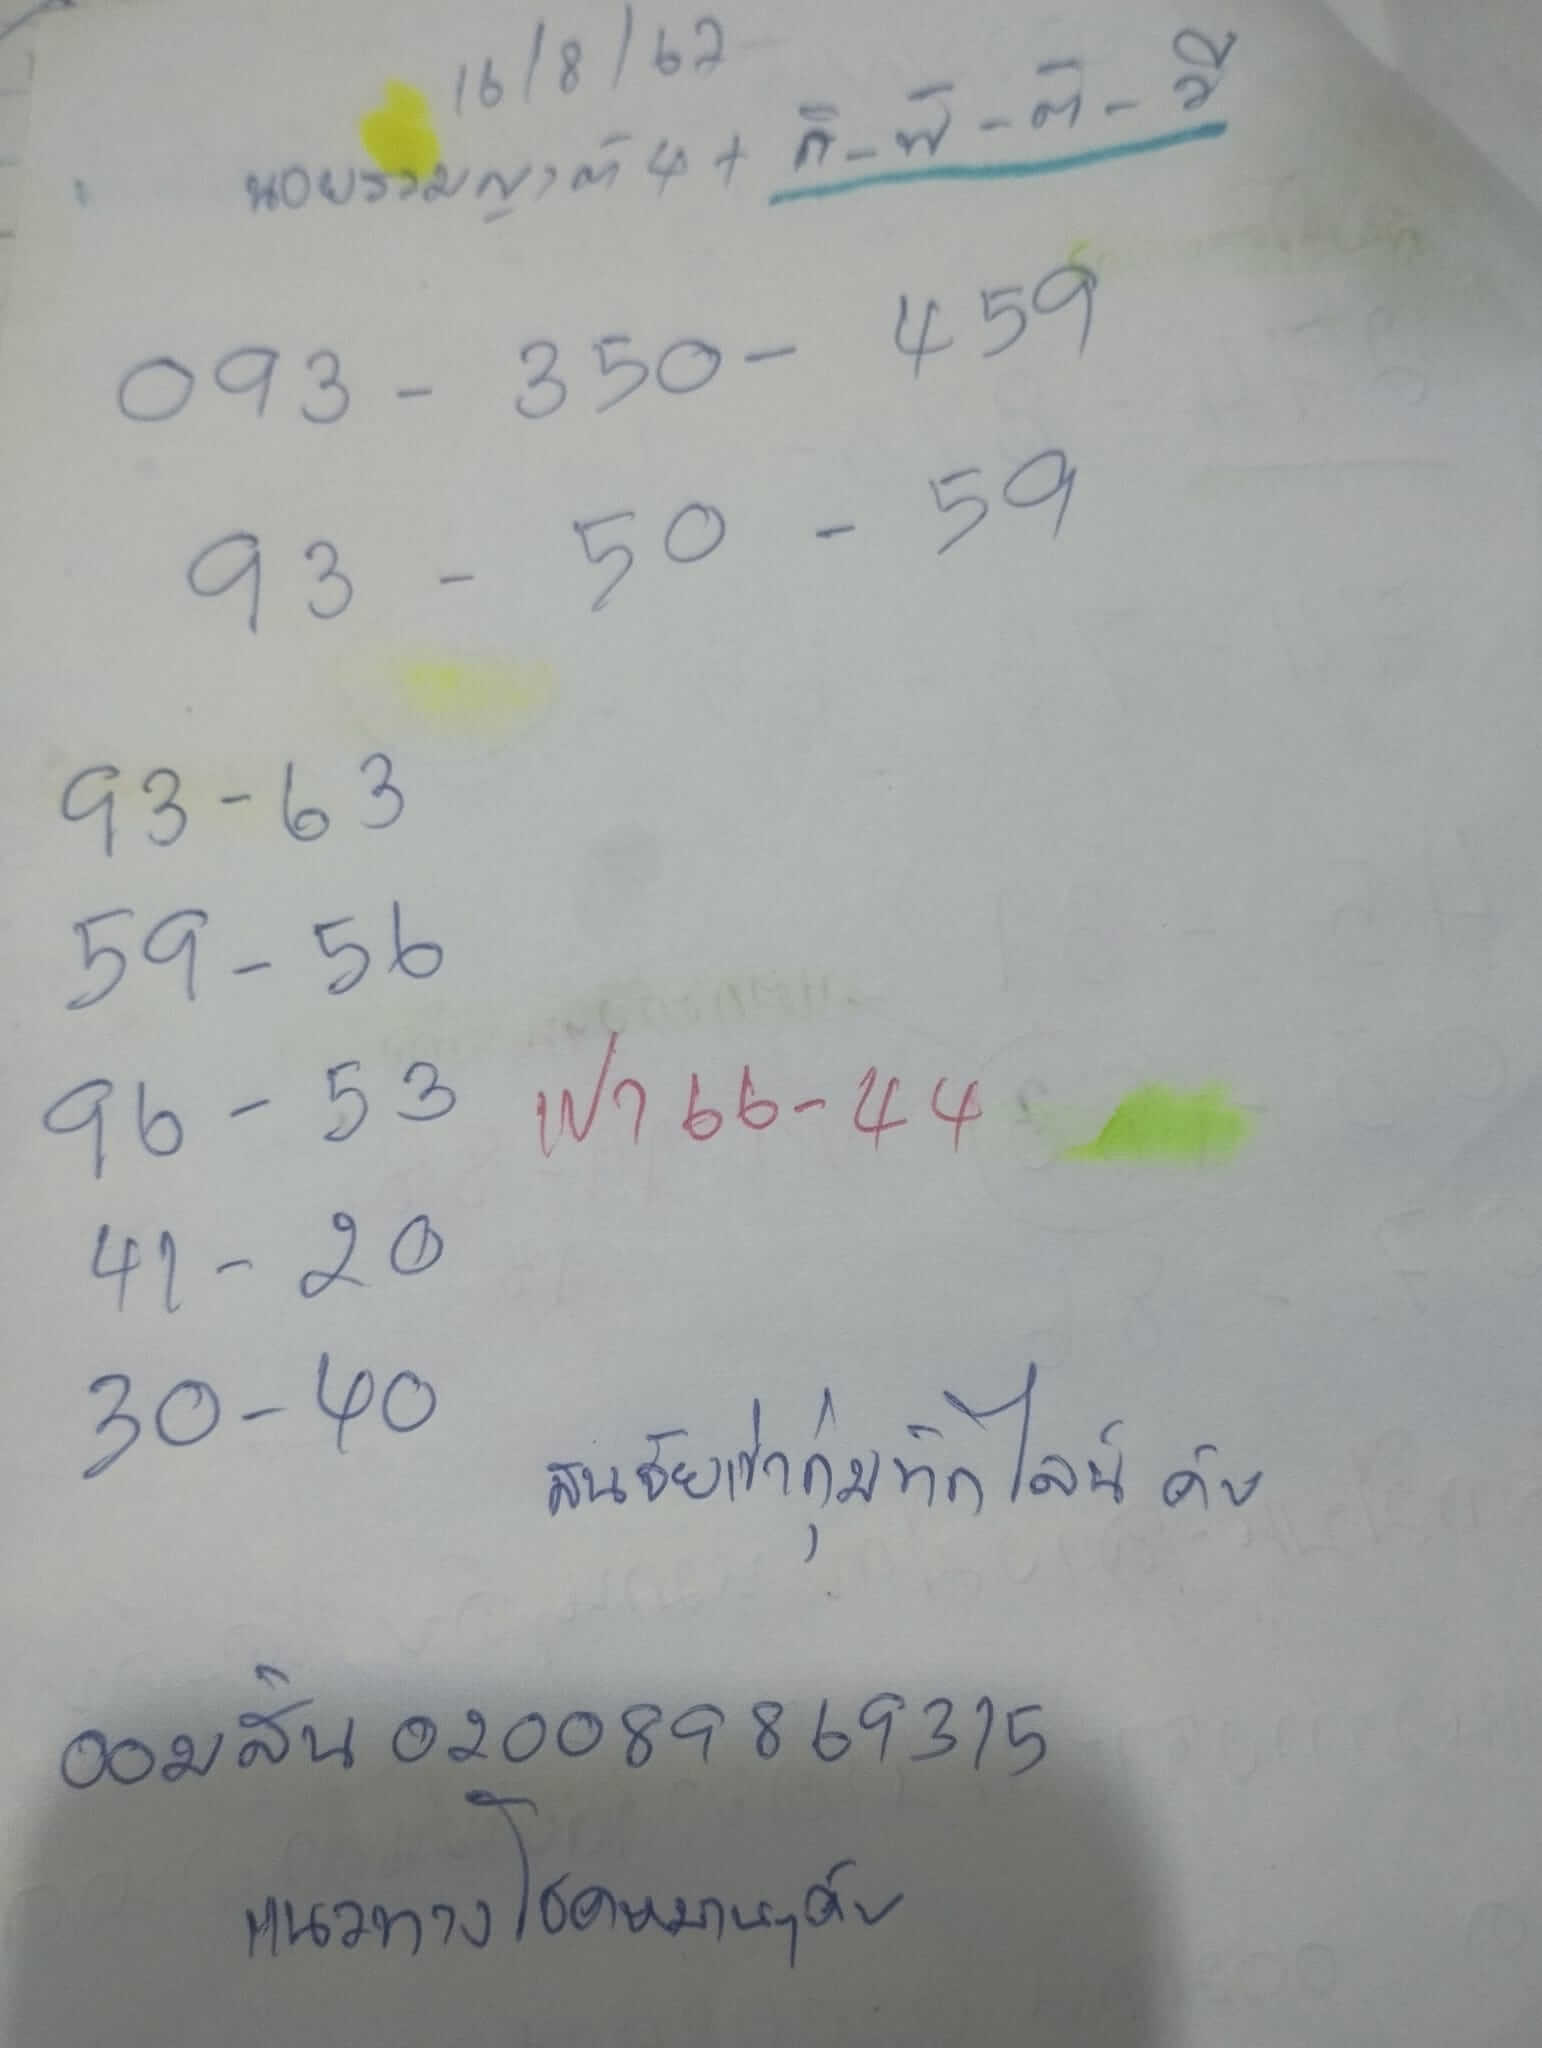 16/8/62
นอยรวมญาติ 4 + ถิ-พิ-ติ-วิ
093 - 350 - 459
93 - 50 - 59
93-63
59-56
96-53 เฝ้า 66-44
41-20
30-40
สนใจเข้ากลุ่มทักไลน์ ครับ
ออมสิน 020089869315
แนวทาง โชคหมานๆครับ